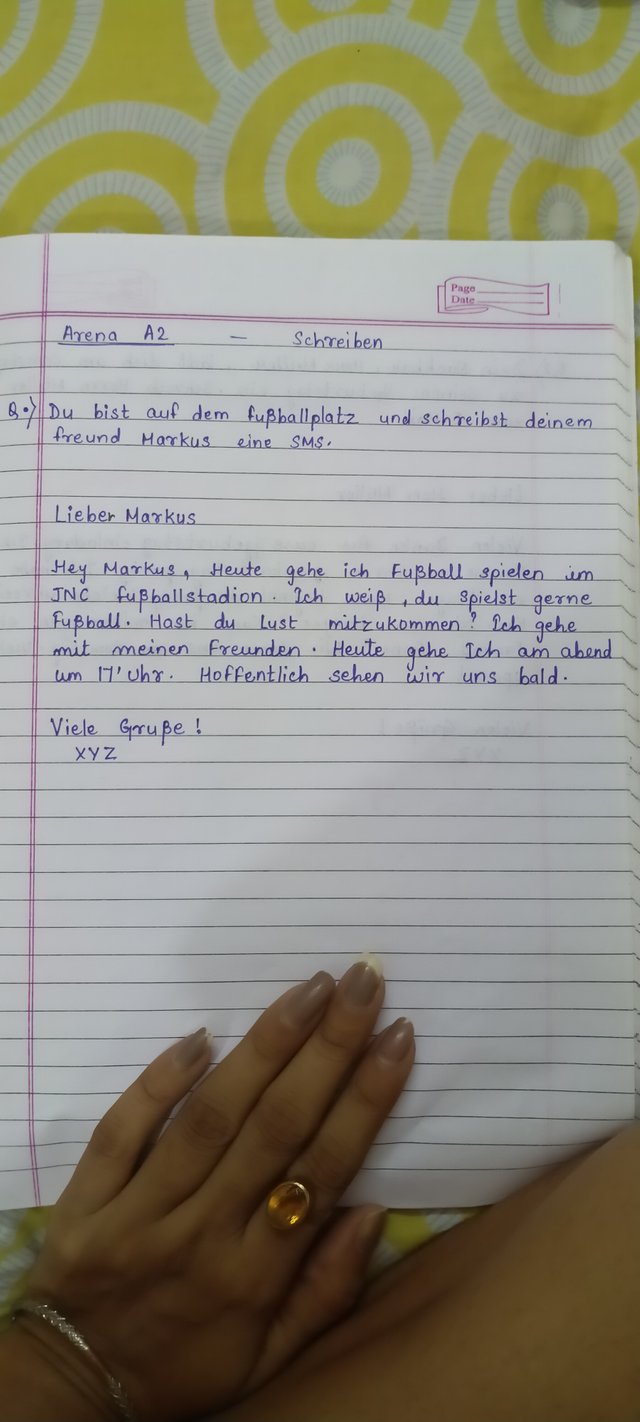 Page
Date
Arena A2 - Schreiben
Q.) Du bist auf dem fußballplatz und schreibst deinem
freund Markus eine SMS.
Lieber Markus
Hey Markus, Heute gehe ich Fußball spielen im
JNC fußballstadion. Ich weiß, du spielst gerne
Fußball. Hast du Lust mitzukommen? Ich gehe
mit meinen Freunden. Heute gehe Ich am abend
um 17'Uhr. Hoffentlich sehen wir uns bald.
Viele Gruße!
XYZ